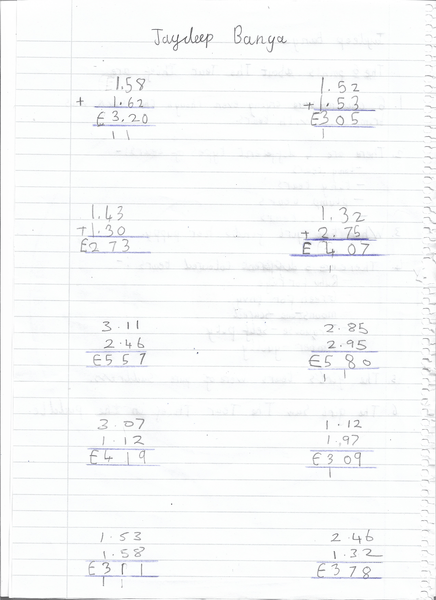 Jaydeep Banya
1.58
+ 1.62
£ 3.20
1 1
1.52
+ 1.53
£ 3 0 5
1
1.43
+ 1.30
£ 2 7 3
1.32
+ 2.75
£ 4 07
1
3.11
2.46
£ 5 5 7
2.85
2.95
£ 5 8 0
1 1
3.07
1.12
£ 4 1 9
1.12
1.97
£ 3 09
1
1.53
1.58
£ 3 1 1
1 1
2.46
1.32
£ 3 7 8